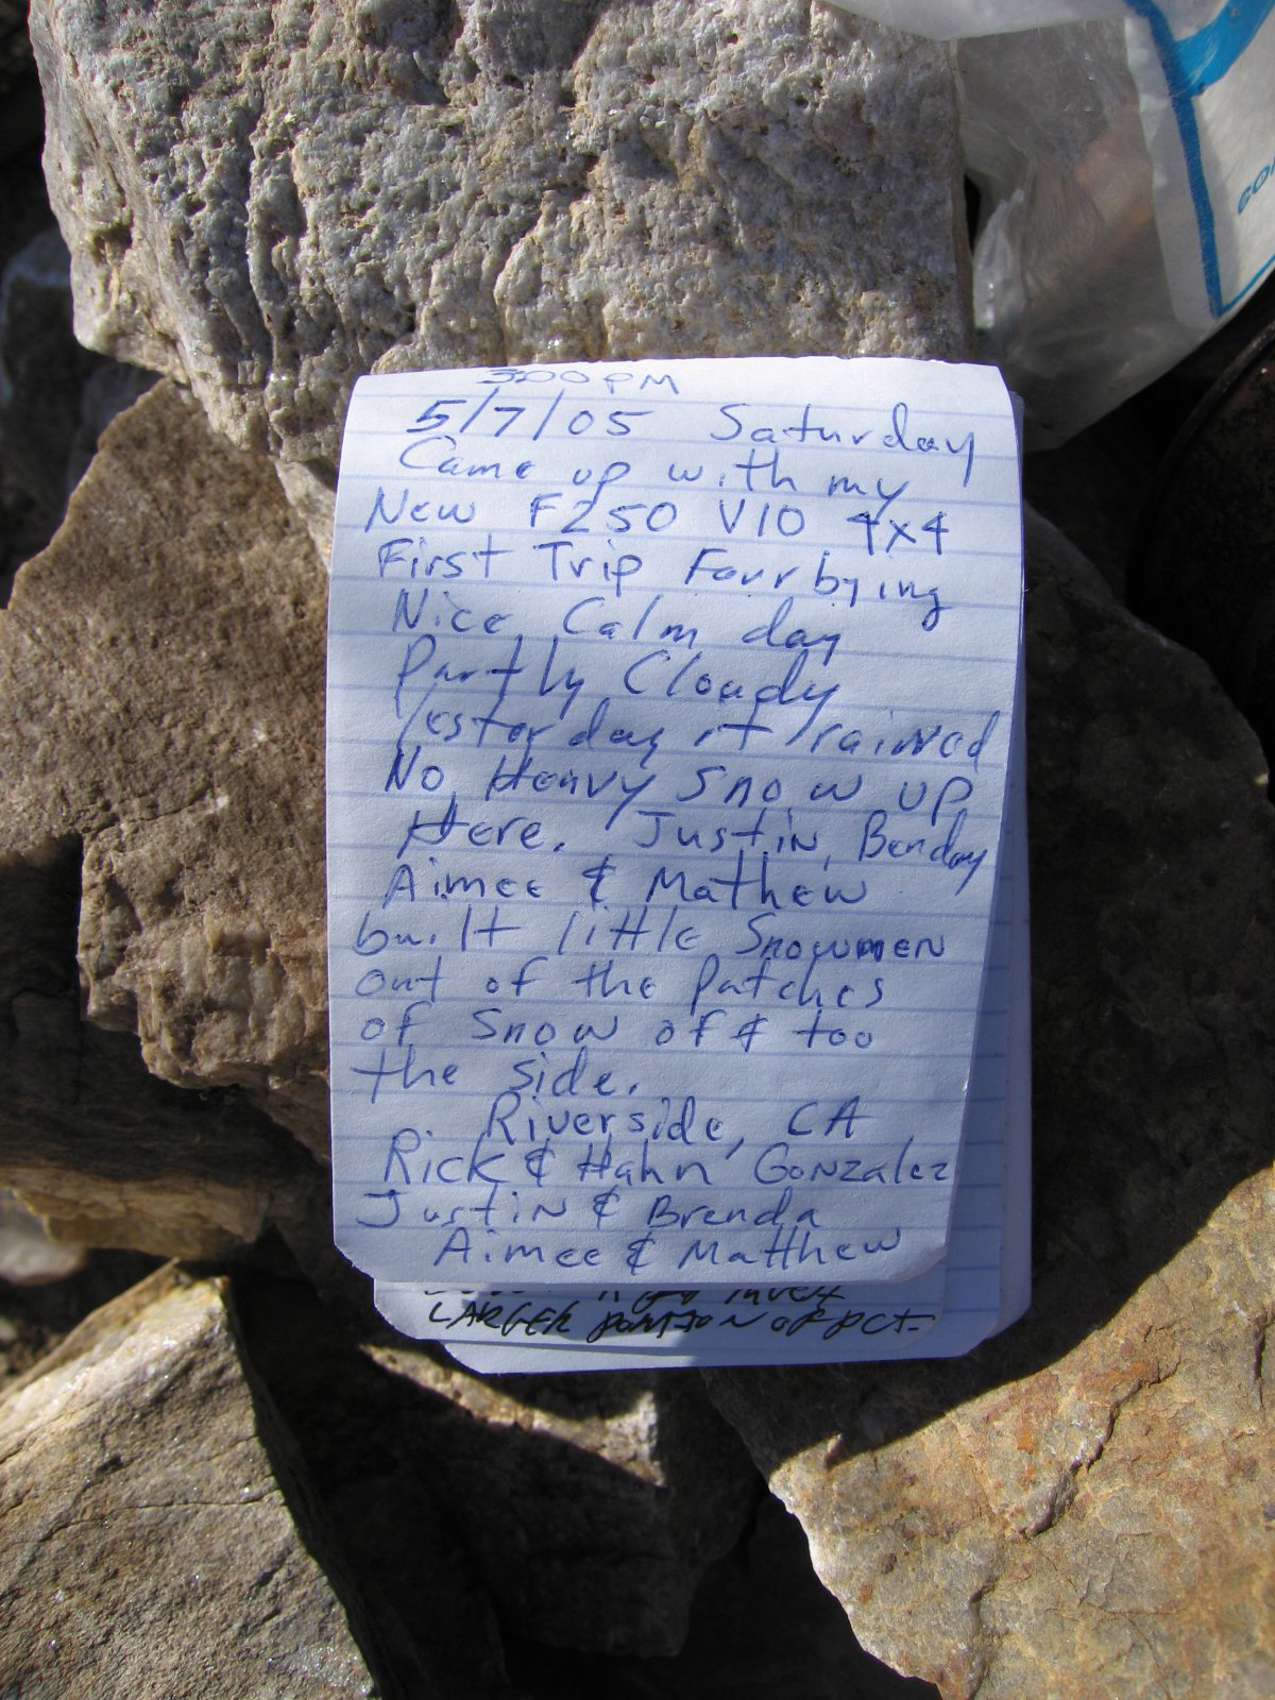 3:00 PM
5/7/05 Saturday
Came up with my
New F250 V10 4x4
First Trip Fourbying
Nice Calm day
Partly Cloudy
Yesterday it rained
No Heavy Snow up
Here. Justin, Benday
Aimee & Mathew
built little Snowmen
out of the patches
of Snow off & too
the side.
Riverside, CA
Rick & Hahn Gonzalez
Justin & Brenda
Aimee & Matthew
LARGER PORTION OF PCT